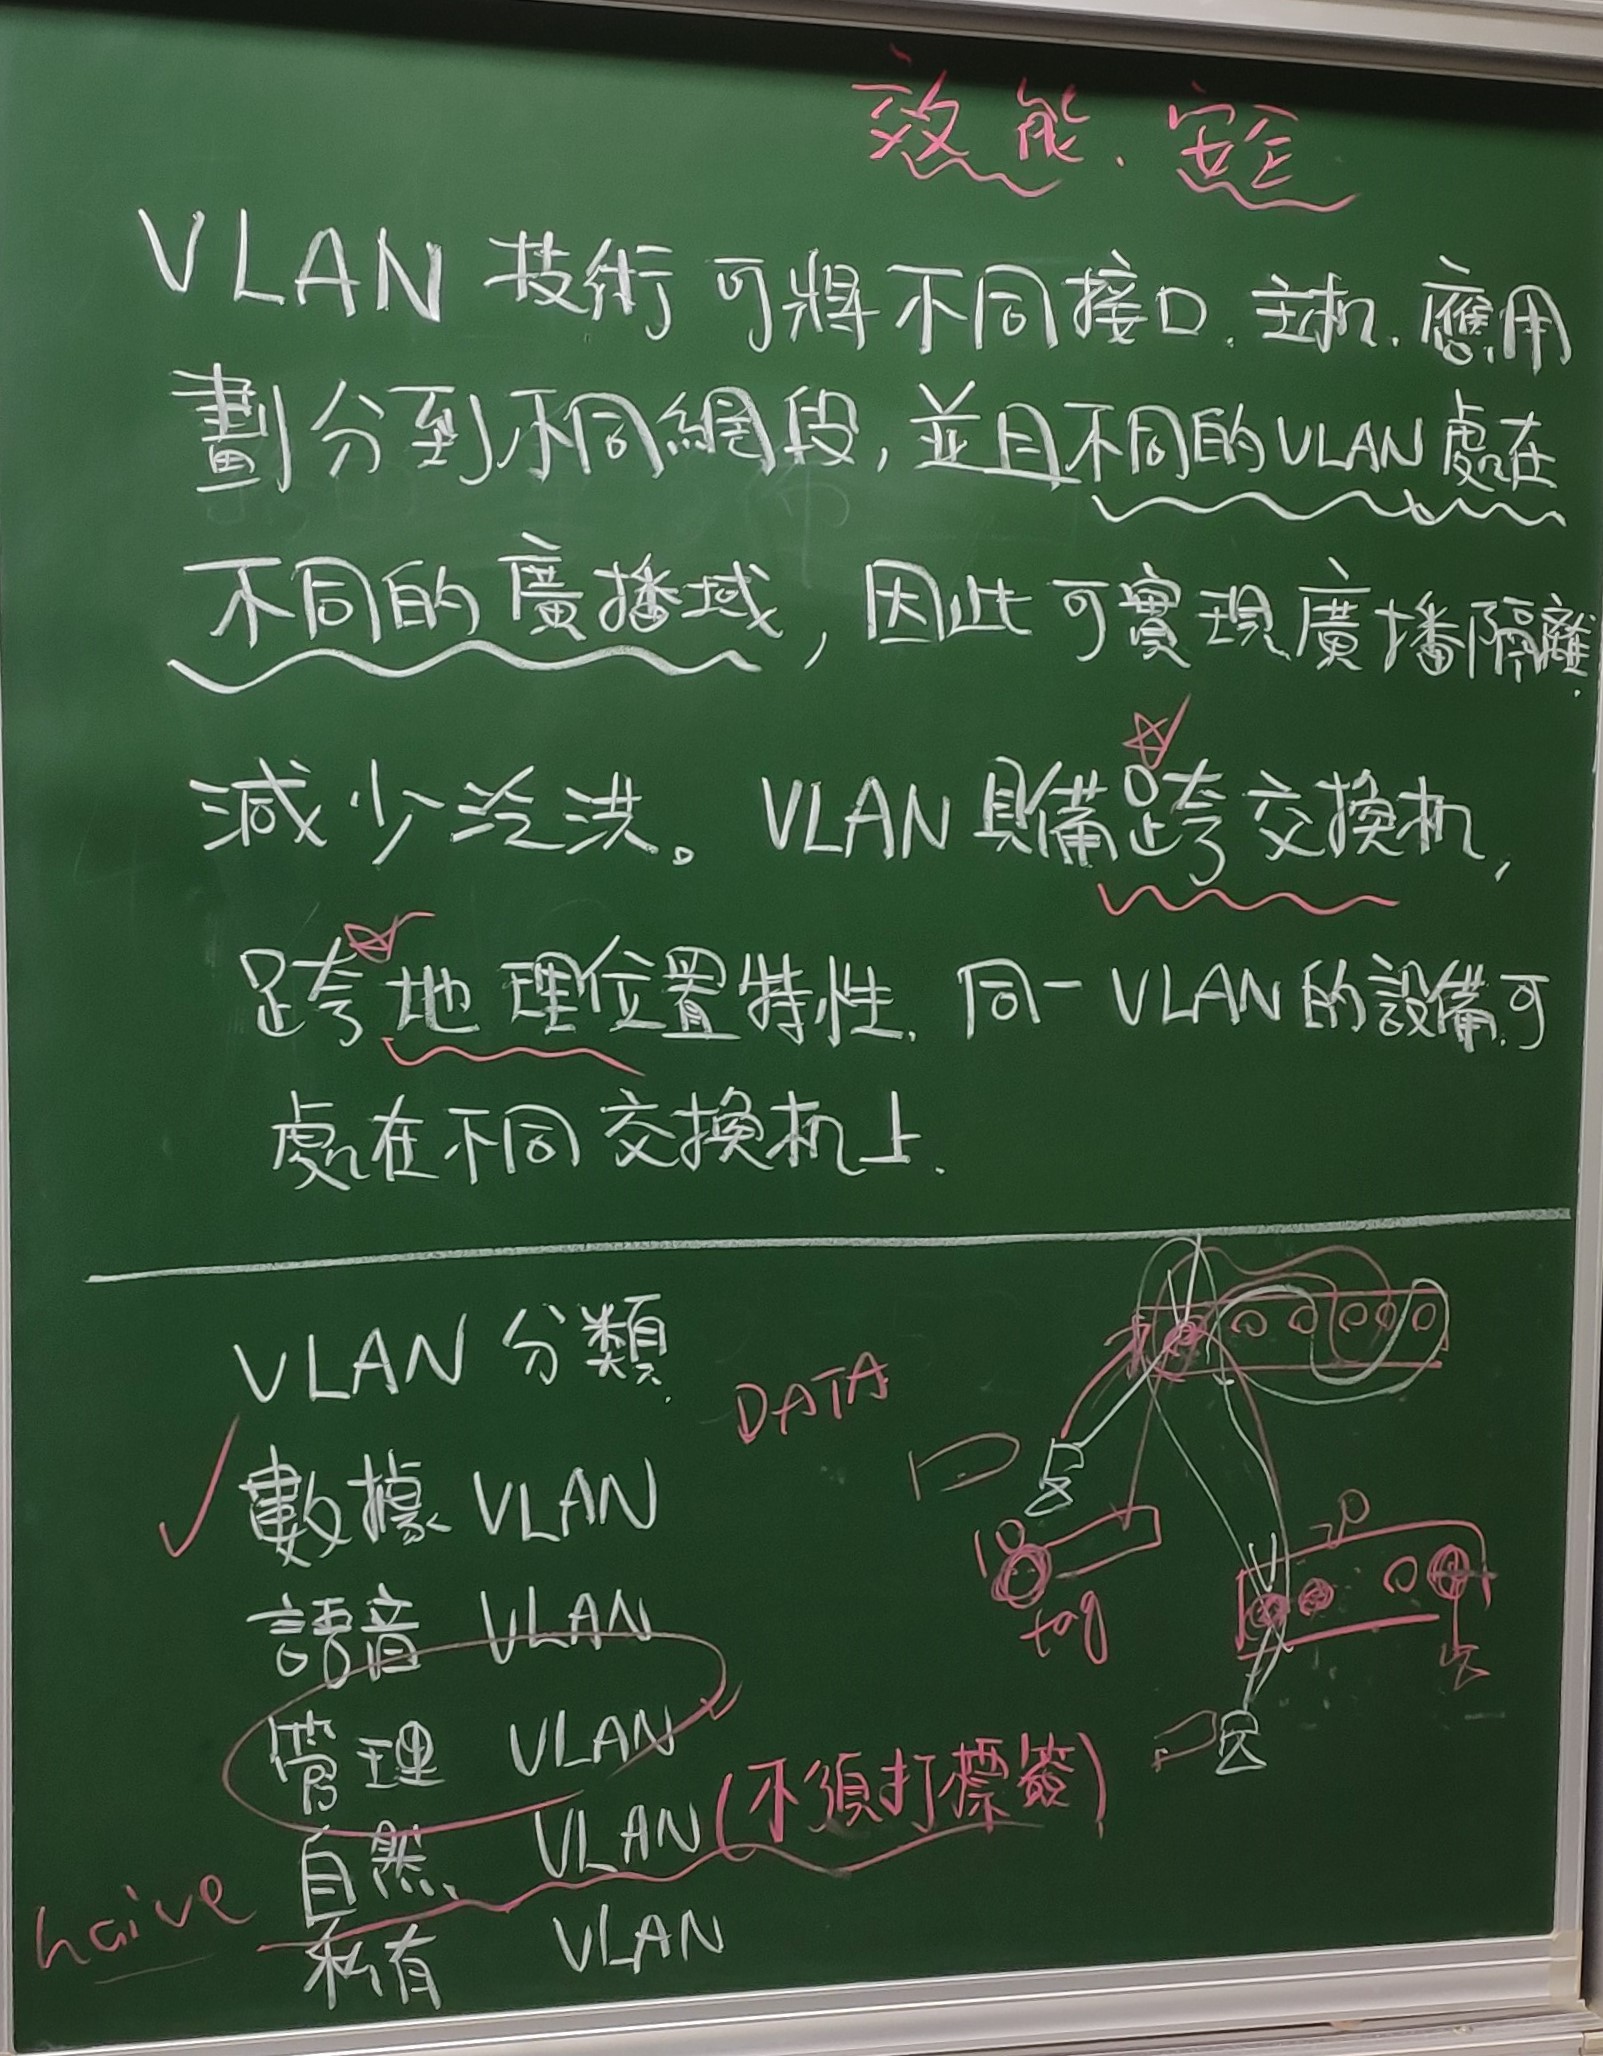 效能、安全
VLAN 技術可將不同接口、主机、應用
劃分到不同網段,並且不同的VLAN處在
不同的廣播域,因此可實現廣播隔離,
減少泛洪。VLAN具備跨交換机,
跨地理位置特性,同一VLAN的設備可
處在不同交換机上.
VLAN 分類
DATA
數據 VLAN
語音 VLAN
10
tag
20
管理 VLAN
自然 VLAN(不須打標簽)
naive
私有 VLAN